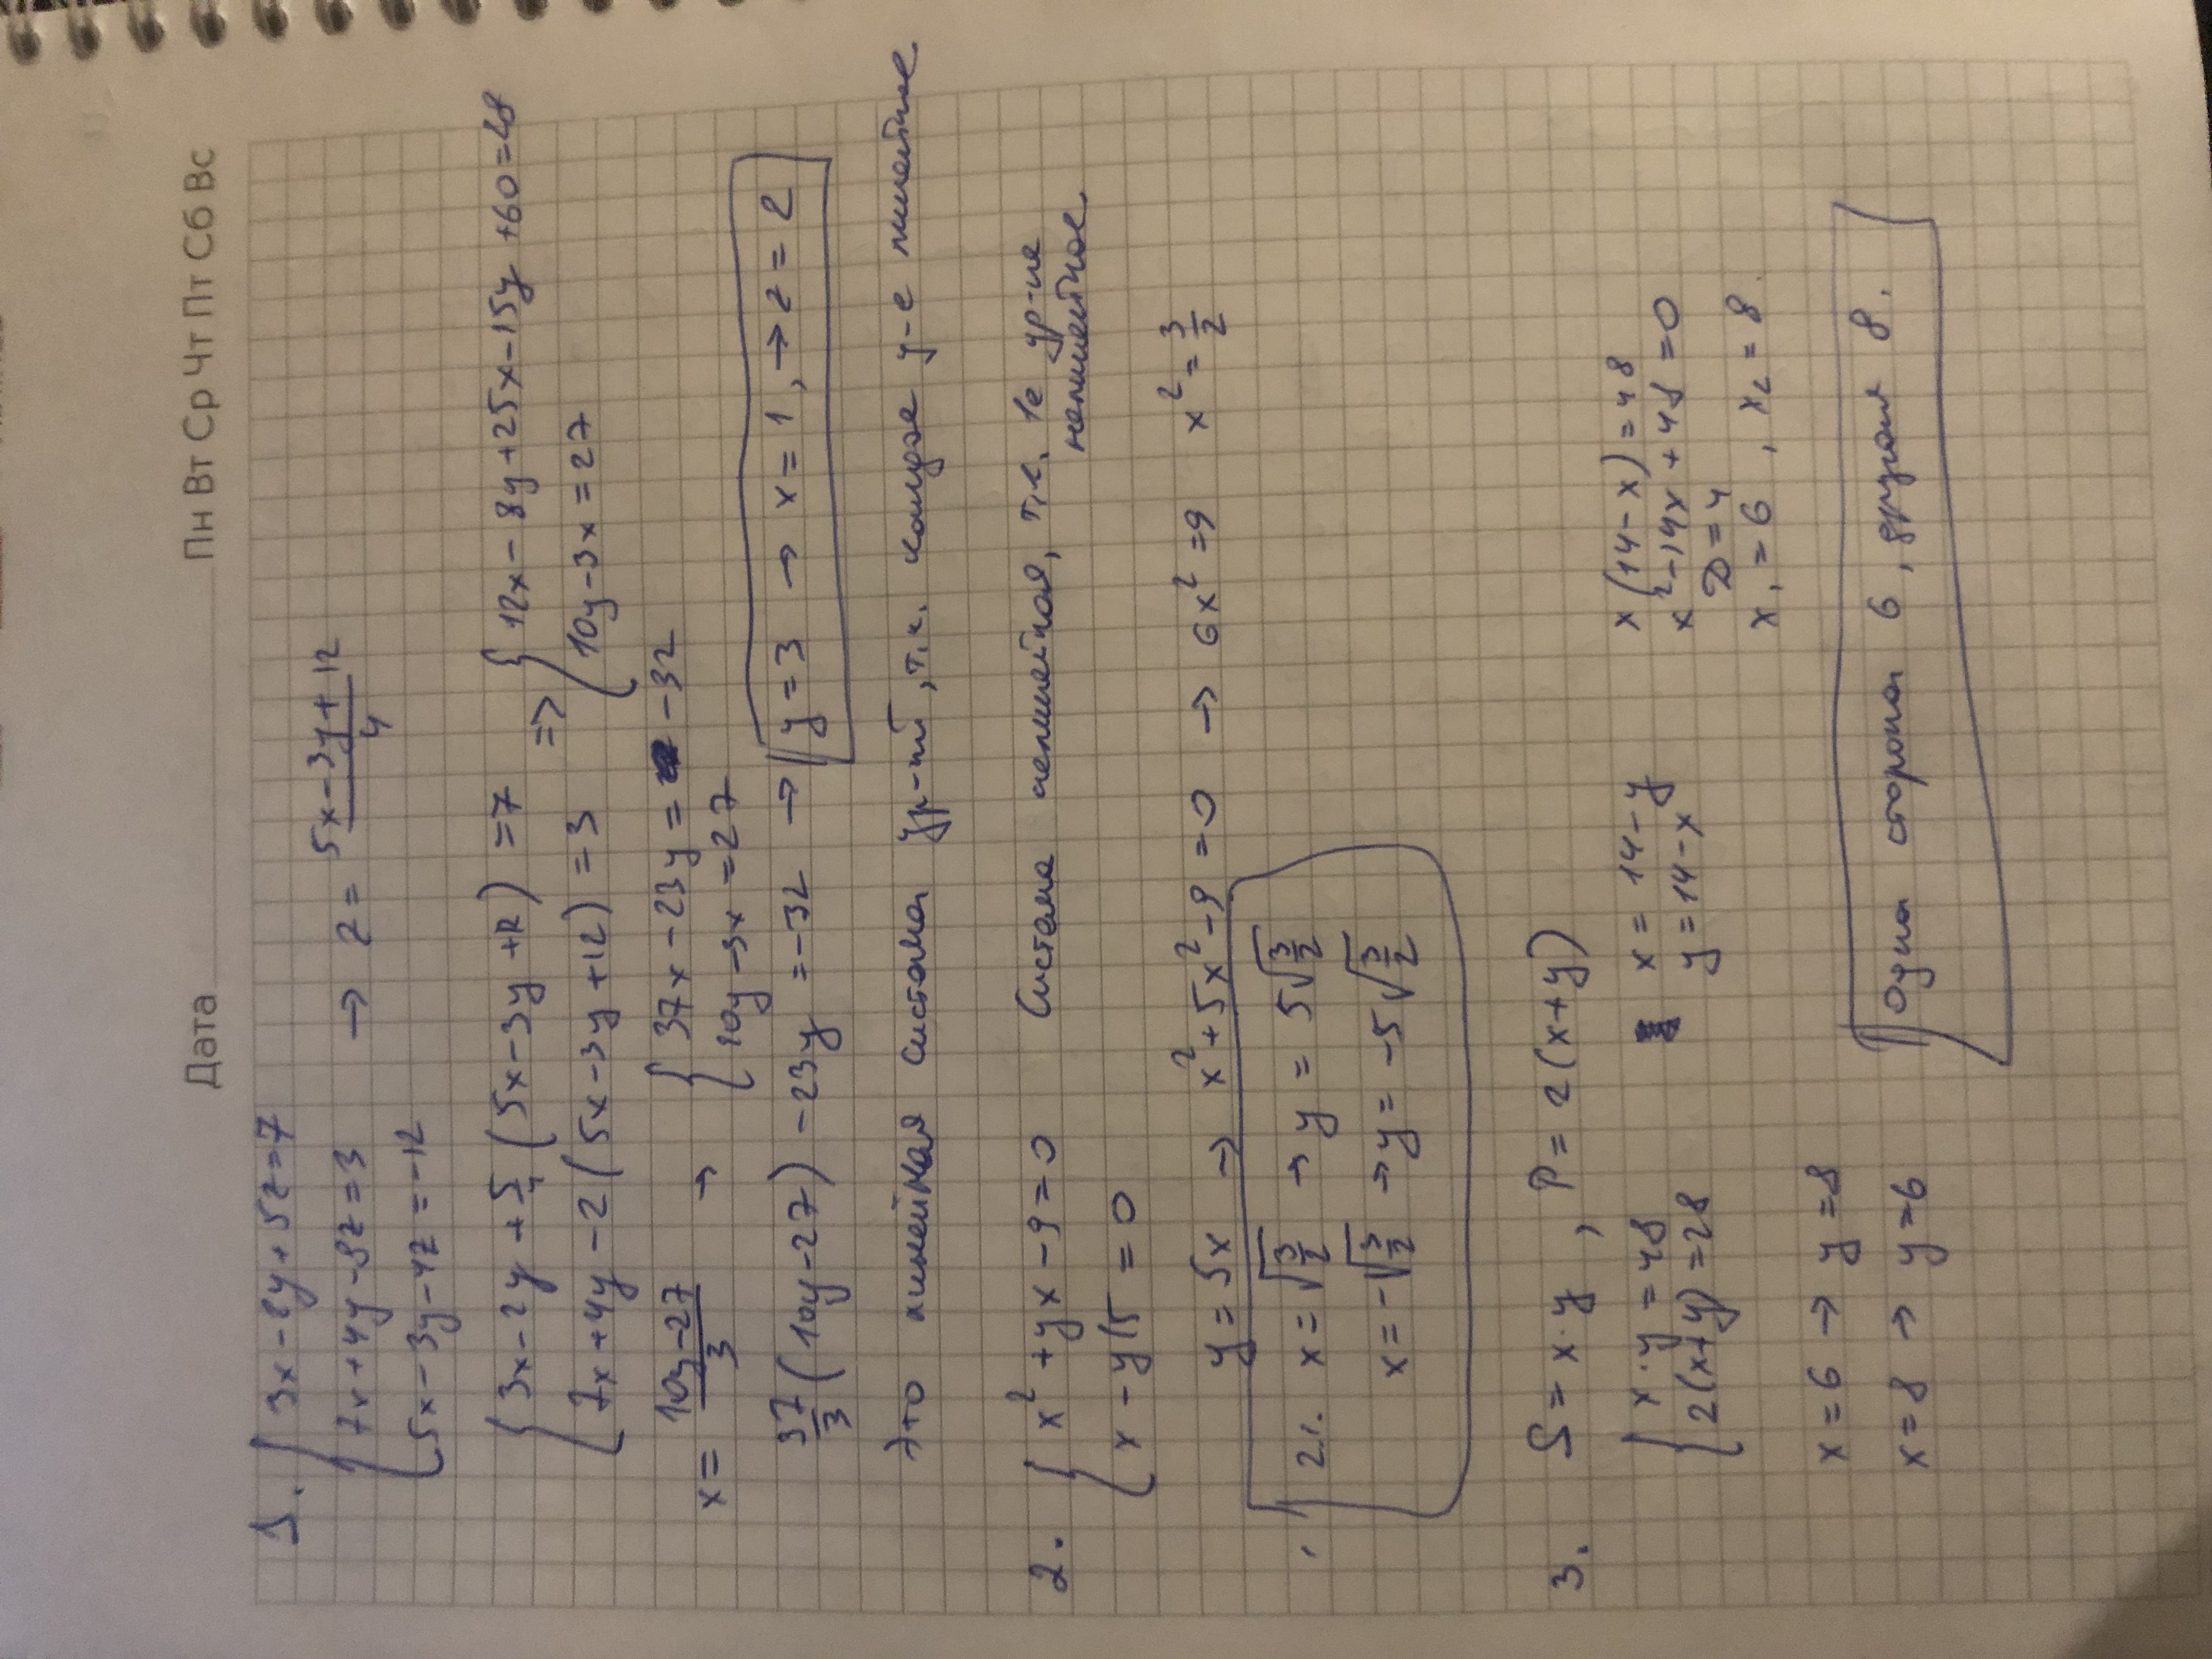 Дата Пн Вт Ср Чт Пт Сб Вс
1. 3x-2y+5z=7
7x+4y-8z=3 → z = (5x-3y+12)/4
5x-3y-4z=-12
3x-2y+5/4(5x-3y+12)=7 => 12x-8y+25x-15y+60=28
7x+4y-2(5x-3y+12)=3 10y-3x=27
x = (10y-27)/3 → 37x-23y= -32
10y-3x=27
37/3(10y-27)-23y=-32 → y=3 → x=1, → z=2
Это линейная система ур-ий, т.к. каждое у-е линейное
2. x²+yx-9=0 Система нелинейная, т.к. 1е ур-ие
нелинейное
x-y/5=0
y=5x → x²+5x²-9=0 → 6x²=9 x²=3/2
2.1. x=√3/2 → y=5√3/2
x=-√3/2 → y=-5√3/2
3. S=x·y, P=2(x+y)
x·y=48 x=14-y x(14-x)=48
2(x+y)=28 y=14-x x²-14x+48=0
D=4
x₁=6, x₂=8.
x=6 → y=8
x=8 → y=6 Одна сторона 6, другая 8.